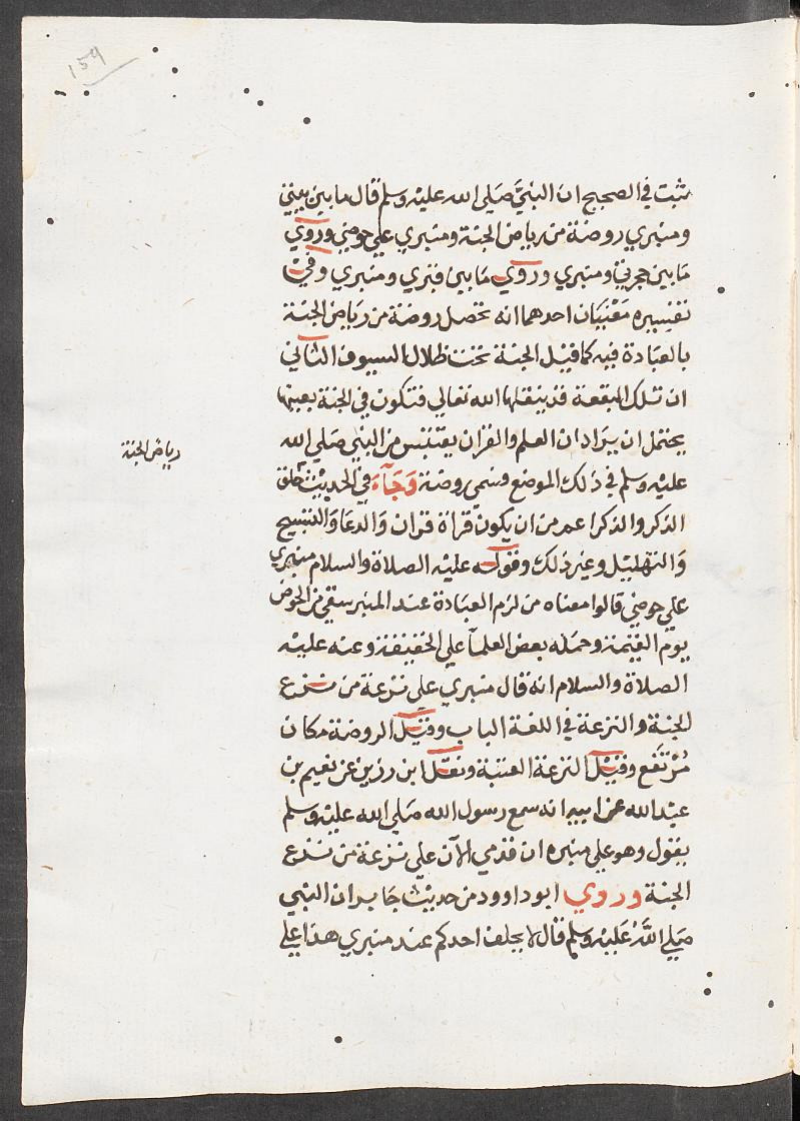 159
ثبت في الصحيح ان النبيَّ صَلي الله عليه وسلم قال ما بين بيتي
ومنبري روضة من رياض الجنة ومنبري علي حوضي وروي
مَا بين حجرتي ومنبري وروي مَا بين قبري ومنبري وفي
تفسيره مَعْنيَان احدهما انه تحصل روضة من ريَاض الجنة
بالعبَادة فيه كما قيل الجنة تحت ظلال السيوف الثاني
ان تلك البقعة قد ينقلها الله تعالي فتكون في الجنة بعينها
يحتمل ان يراد ان العلم والقران يقتبس من النبي صَلي الله
رياض الجنة
عليه وسلم في ذلك الموضع فسمي روضة وَجَآءَ في الحديث حلق
الذكر والذكر اعم من ان يكون قراة قران وَالدعَا وَالتسبيح
وَالتهليل وغير ذلك وقوله عليه الصلاة والسلام منبري
علي حوضي قالوا معناه من لزم العبَادة عند المنبر سقي من الحوض
يوم القيمة وحمله بعض العلمآ علي الحقيقة وعنه عليه
الصلاة والسلام انه قال منبري علي نزعة من نزع
الجنة والنزعة في اللغة الباب وقيل الروضة مكان
مُرْتفع وقيل النزعة العتبة ونقل ابن رزين عن نعيم بن
عبد الله عن ابيه انه سمع رسول الله صَلي الله عليه وسلم
يقول وهو علي منبره ان قدمي الآن علي نزعة من نزع
الجنة وروي ابو داوود من حديث جَابر ان النبي
صَلي اللَّه عَليْه وسلم قال لا يحلف احدكم عند منبري هذا علي